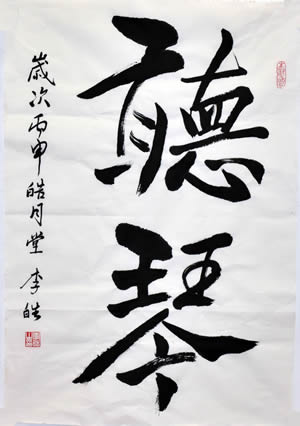 聽琴
歲次丙申皓月堂李皓